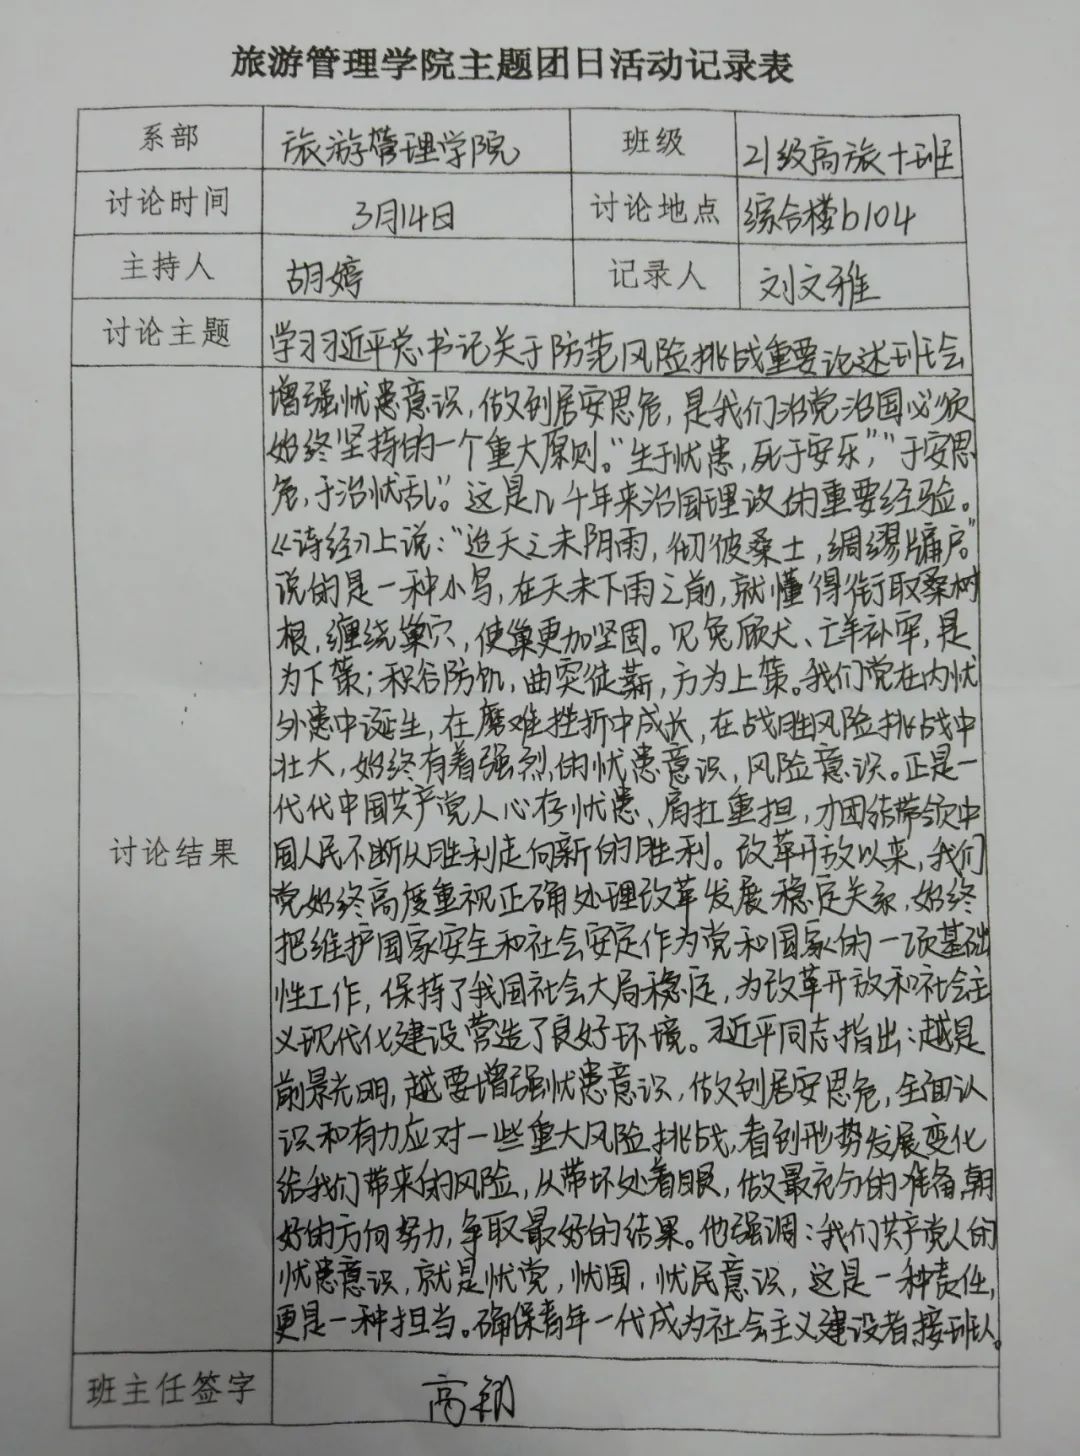 旅游管理学院主题团日活动记录表
系部 旅游管理学院 班级 21级高旅十班
讨论时间 3月14日 讨论地点 综合楼b104
主持人 胡婷 记录人 刘文雅
讨论主题 学习习近平总书记关于防范风险挑战重要论述班会
增强忧患意识,做到居安思危,是我们治党治国必须
始终坚持的一个重大原则。“生于忧患,死于安乐”,“于安思
危,于治忧乱”。这是几千年来治国理议的重要经验。
《诗经》上说:“迨天之未阴雨,彻彼桑土,绸缪牖户。”
说的是一种小鸟,在天未下雨之前,就懂得衔取桑树
根,缠绕巢穴,使巢更加坚固。见兔顾犬、亡羊补牢,是
为下策;积谷防饥,曲突徒薪,方为上策。我们党在内忧
外患中诞生,在磨难挫折中成长,在战胜风险挑战中
壮大,始终有着强烈的忧患意识,风险意识。正是一
代代中国共产党人心存忧患、肩扛重担,才团结带领中
国人民不断从胜利走向新的胜利。改革开放以来,我们
党始终高度重视正确处理改革发展稳定关系,始终
把维护国家安全和社会安定作为党和国家的一项基础
性工作,保持了我国社会大局稳定,为改革开放和社会主
义现代化建设营造了良好环境。习近平同志指出:越是
前景光明,越要增强忧患意识,做到居安思危,全面认
识和有力应对一些重大风险挑战,看到形势发展变化
给我们带来的风险,从带坏处着眼,做最充分的准备,朝
好的方向努力,争取最好的结果。他强调:我们共产党人的
忧患意识,就是忧党,忧国,忧民意识,这是一种责任,
更是一种担当。确保青年一代成为社会主义建设者接班人。
讨论结果
班主任签字 高